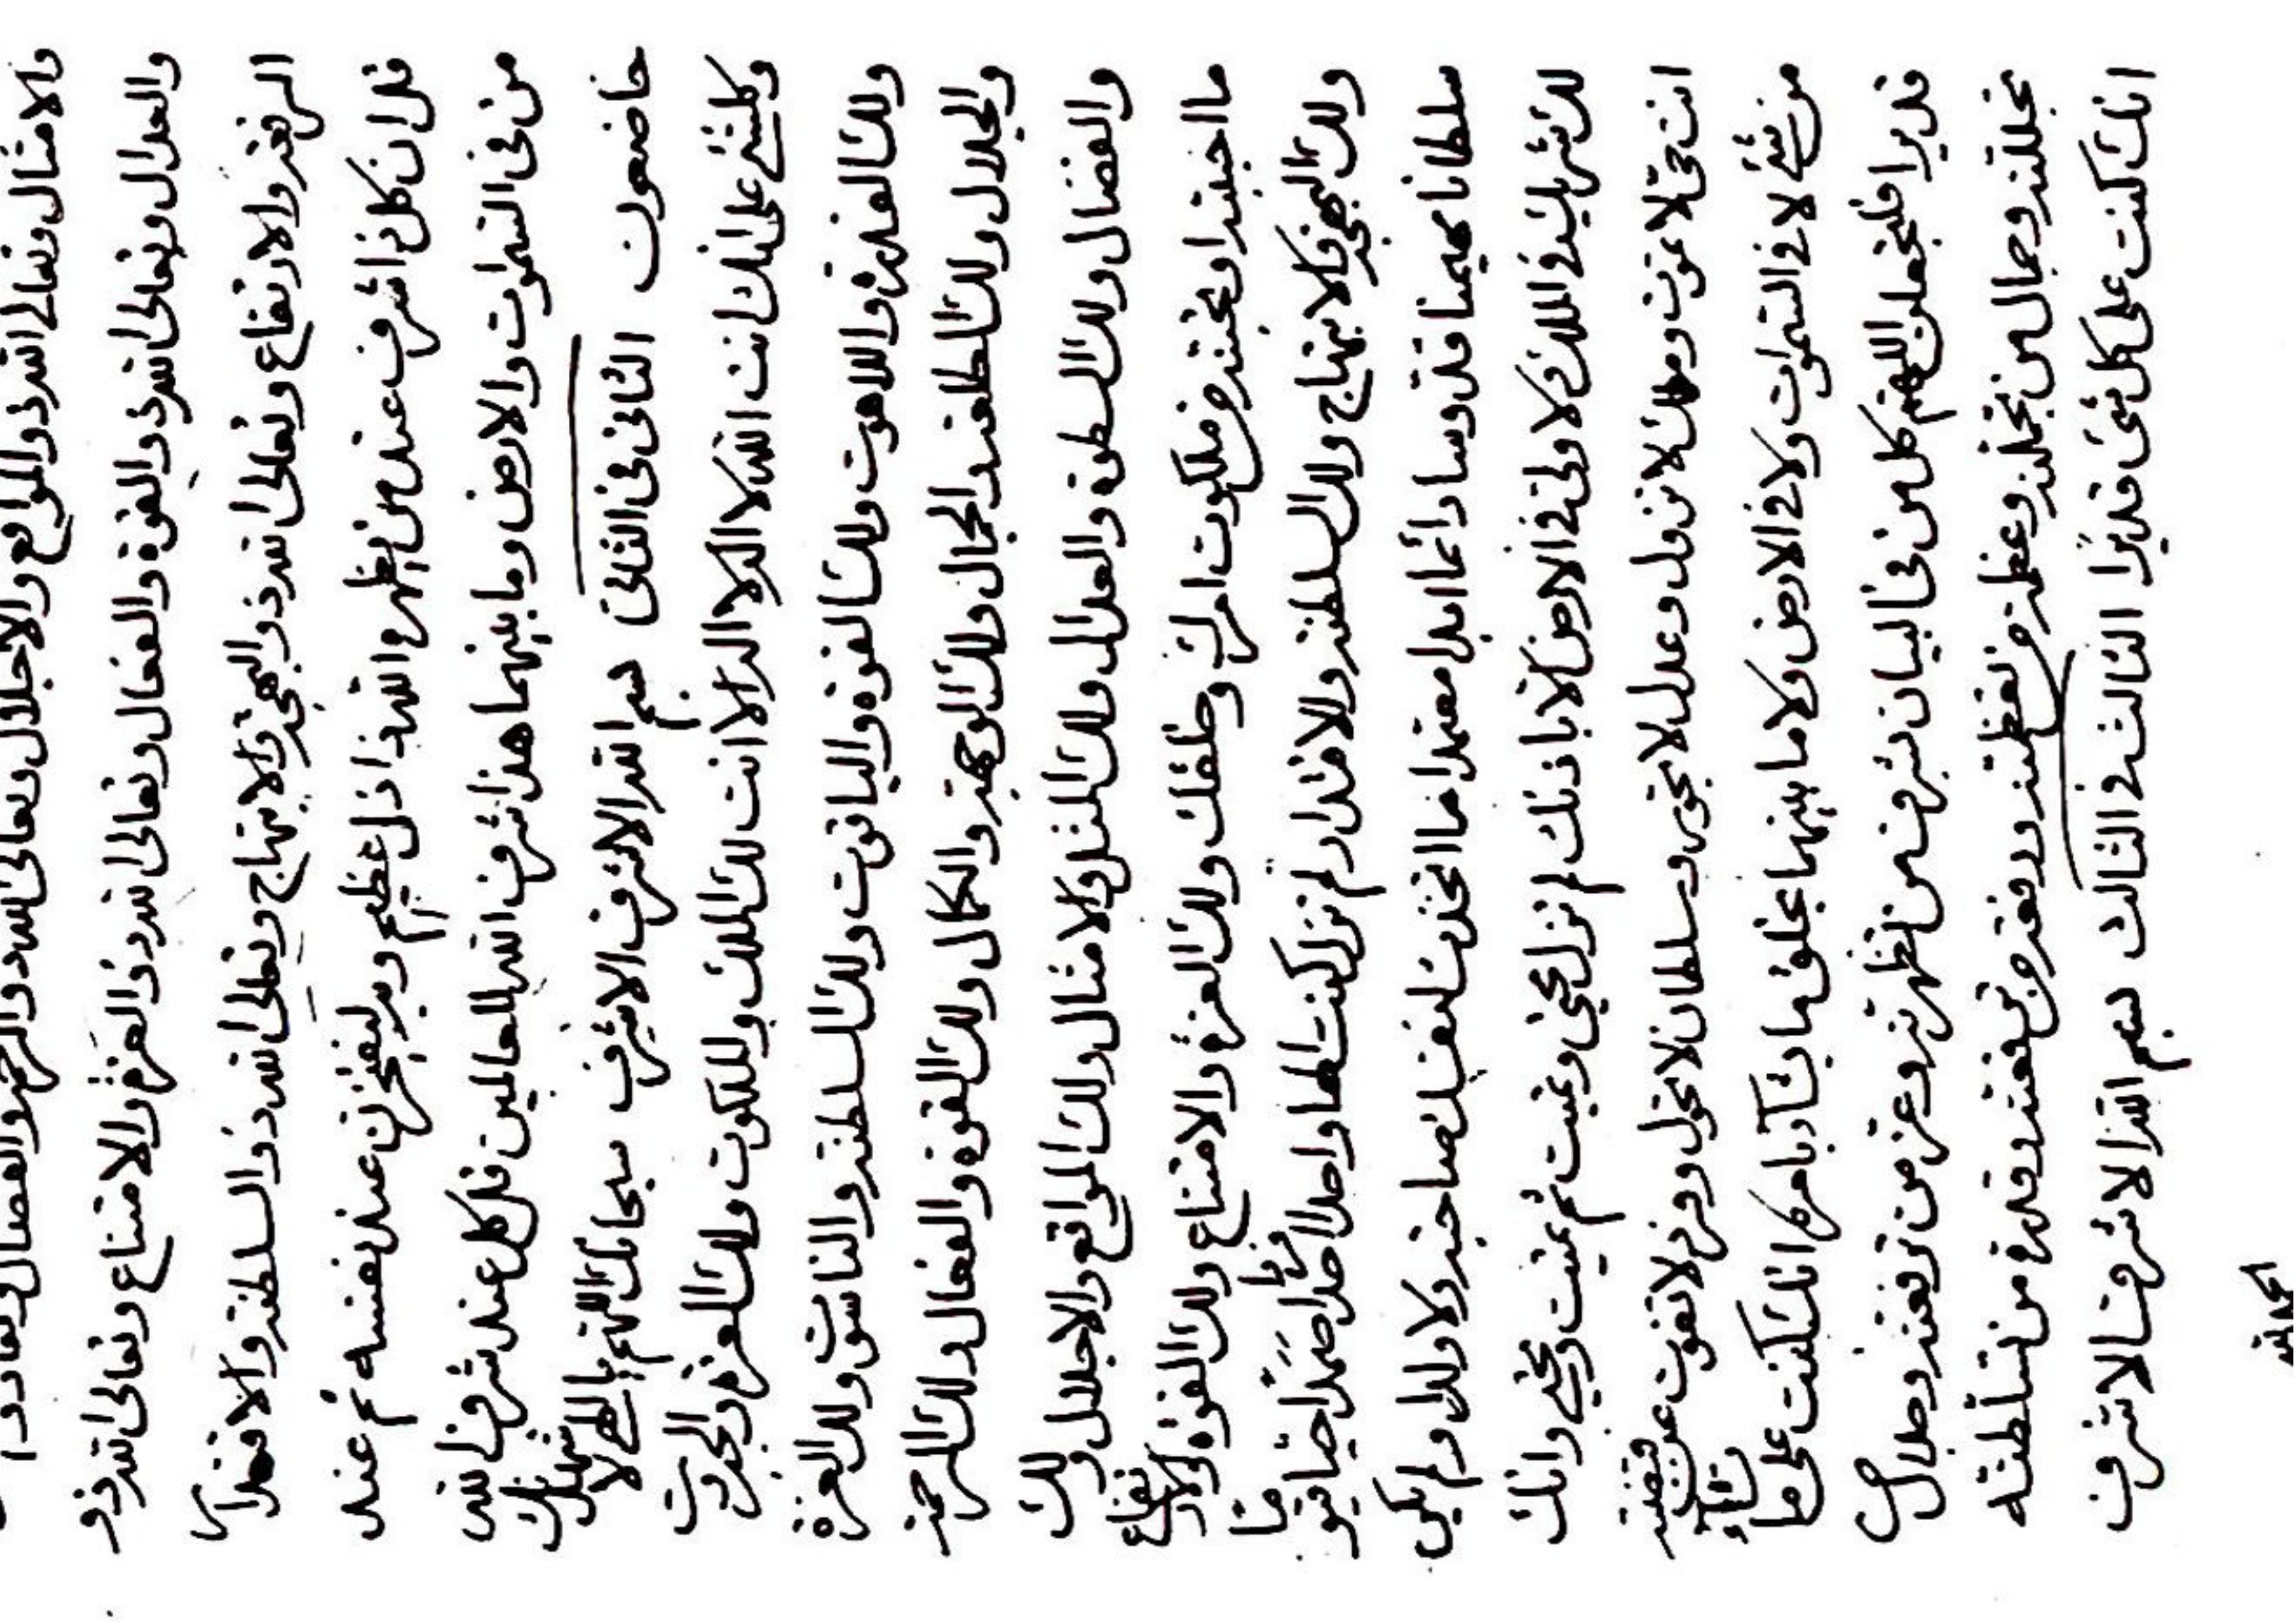 والامثال وتعالی الله ذو المواقع والاجلال وتعالی الله ذو الرحمة والفضال
والعدال وتعالی الله ذو القوة والفعال وتعالی الله ذو العزة والامتناع وتعالی الله ذو
الرفعة والارتفاع وتعالی الله ذو البهجة والابتهاج وتعالی الله ذو السلطنة والاقتدار
قل ان کل ذا شرف عند من یظهره الله ذا ذل عظیم وبه لیفخرن عند نفسه ثم عند
من فی السموات والارض وما بینهما هذا شرف الله للعالمین قل کل عند شرف الله
خاضعون الثانی فی الثانی بسم الله الاشرف الاشرف سبحانک اللهم یا الهی لاشهدنک
وکلشیء علی انک انت الله لا اله الا انت لک الملک والملکوت ولک العز والجبروت
ولک القدرة واللاهوت ولک القوة والیاقوت ولک السلطنة والناسوت ولک العزة
والجلال ولک الطلعة والجمال ولک الوجهة والکمال ولک القوة والفعال ولک الرحمة
والفضال ولک السطوة والعدال ولک المثل والامثال ولک المواقع والاجلال ولک
ما احببته او تحببنه من ملکوت امرک وخلقک ولک العزة والامتناع ولک القوة والارتفاع
ولک البهجة والابتهاج ولک السلطنة والاقتدار لم تزل کنت الها واحدا احدا فردا صمدا حیا قیوما
سلطانا مهیمنا قدوسا دائما ابدا معتمدا ما اتخذت لنفسک صاحبة ولا ولدا ولم یکن
لک شریک فی الملک ولا ولی فی الارض الا باذنک لم تزل تحیی وتمیت ثم تمیت وتحیی وانک
انت حی لا تموت وملک لا تزول وعدل لا تجور وسلطان لا تحول وفرد لا تفوت عن قبضتک
من شیء لا فی السموات ولا فی الارض ولا ما بینهما تخلق ما تشآء بامرک انک کنت علی ما تشآء
قدیرا فلتجعلن اللهم کل من فی البیان شرفه من تظهرنه وعزه من ترفعنه وجلاله من
تجللنه وجماله من تجملنه وعظمته من تعظمنه ورفعته من ترفعنه وقدرته من تسلطنه
انک کنت علی کل شیء قدیرًا الثالث فی الثالث بسم الله الاشرف الاشرف
الحمد لله